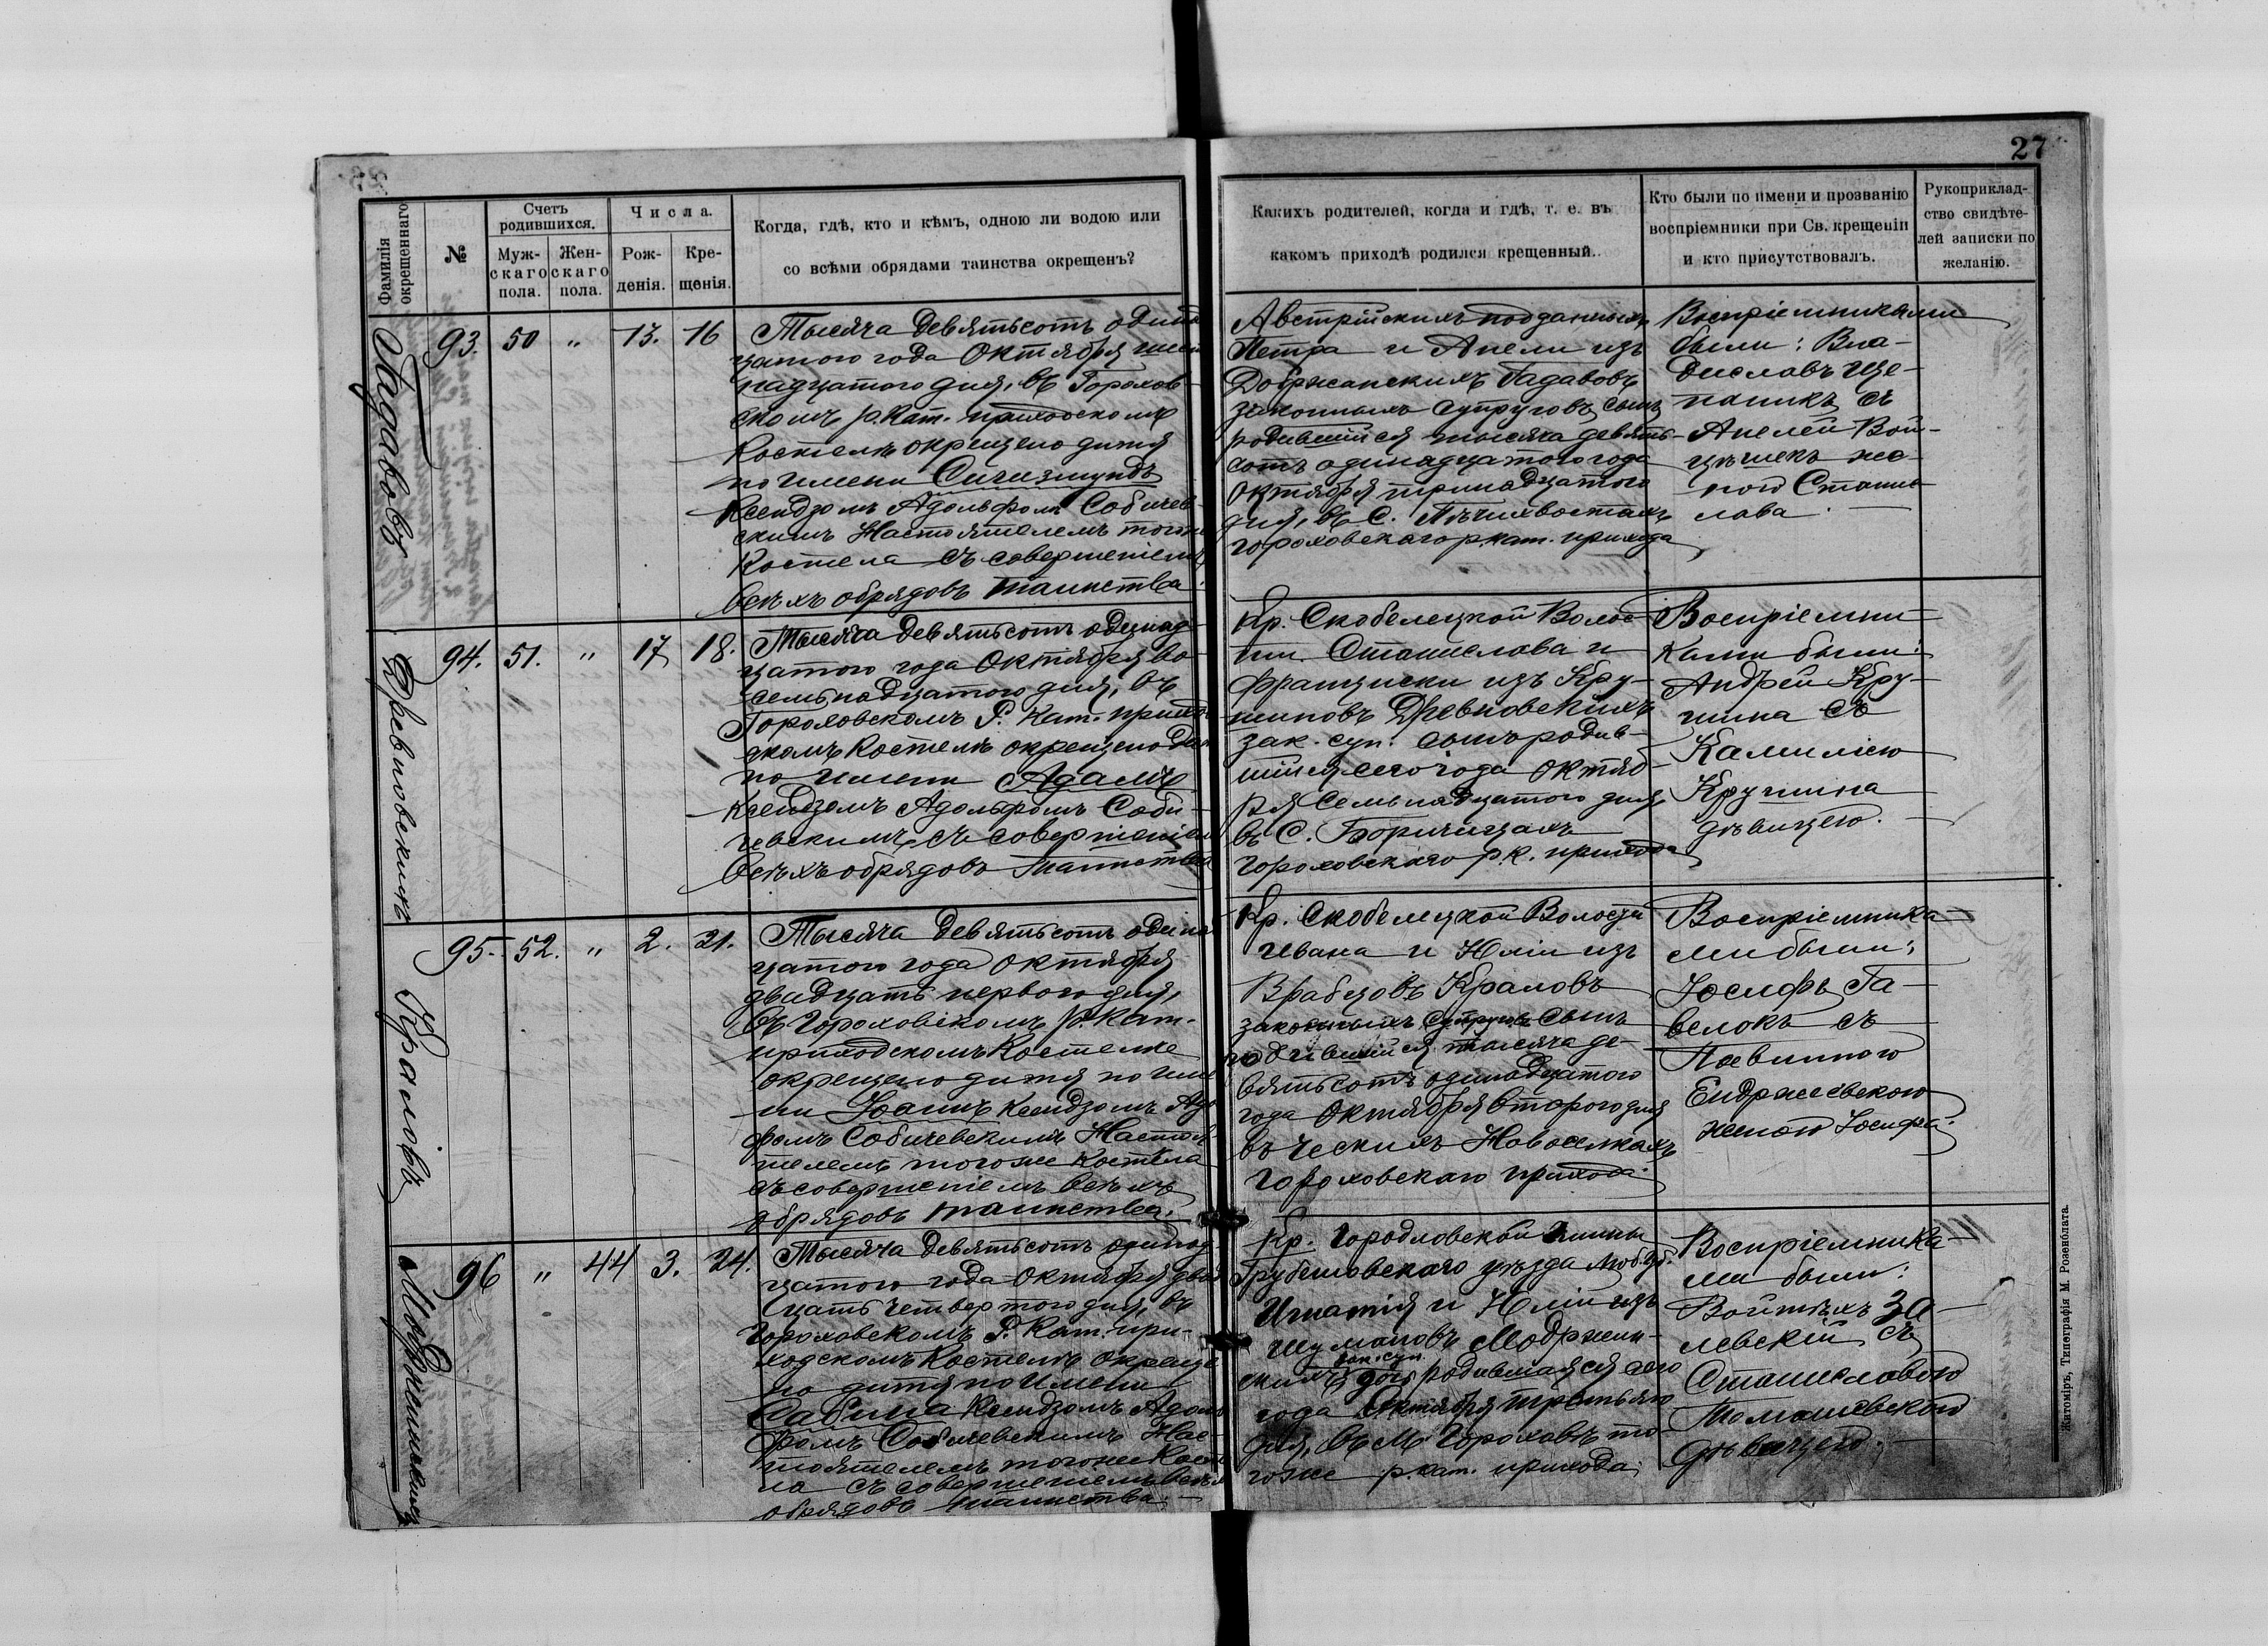 27
Фамилія окрещеннаго
№
Счетъ родившихся.
Муж-
скаго
пола.
Жен-
скаго
пола.
Числа.
Рож-
денія.
Кре-
щенія.
Когда, гдѣ, кто и кѣмъ, одною ли водою или
со всѣми обрядами таинства окрещенъ?
Какихъ родителей, когда и гдѣ, т. е. въ
какомъ приходѣ родился крещенный.
Кто были по имени и прозванію
воспріемники при Св. крещеніи
и кто присутствовалъ.
Рукоприклад-
ство свидѣте-
лей записки по
желанію.
Гадавовъ
93. 50 " 13. 16
Тысяча девятьсотъ одина
цатого года Октября шест
надцатого дня, въ Горохов-
скомъ р. Кат. приходскомъ
Костелѣ окрещено дитя
по имени Сигизмундъ
Ксендзомъ Адольфомъ Собичев-
скимъ Настоятелемъ тогоже
Костела съ совершеніемъ
всѣхъ обрядовъ таинства.
Австрійскихъ подданныхъ
Петра и Анели изъ
Добржанскихъ Гадавовъ
законныхъ супруговъ сынъ
родившійся тысяча девять-
сотъ одинадцатого года
Октября тринадцатого
дня, въ С. Пѣчихвостахъ
гороховскаго р. кат. прихода
Воспріемниками
были: Вла-
диславъ Ще-
паникъ съ
Анелей Вой-
цѣшекъ же-
ною Станис
лава.
Древновскихъ
94. 51. " 17 18.
Тысяча девятьсотъ одинад
цатого года Октября во-
семьнадцатого дня, въ
Гороховскомъ Р. Кат. приход
скомъ Костелѣ окрещено дитя
по имени Адамъ
Ксендзомъ Адольфомъ Соби-
чевскимъ, съ совершеніемъ
всѣхъ обрядовъ таинства
Кр. Скобелецкой Волос-
ти Станислава и
Францишки изъ Кру-
шиновъ Древновскихъ
зак. суп. сынъ родив-
шійся сего года Октяб-
ря семьнадцатого дня,
въ С. Боричицахъ
Гороховскаго р. к. прихода
Воспріемни-
ками были:
Андрей Кру-
шина съ
Камиліею
Крушина
дѣвицею.
Краловъ
95. 52. " 2. 21.
Тысяча девятьсотъ одина
цатого года Октября
двадцать первого дня,
въ Гороховскомъ р. Кат.
приходскомъ Костелѣ
окрещено дитя по име
ни Іоаннъ Ксендзомъ Адо
фомъ Собичевскимъ Настоя
телемъ тогоже Костела
съ совершеніемъ всѣхъ
обрядовъ таинства.
Кр. Скобелецкой Волости
Ивана и Юліи изъ
Врабцовъ Краловъ
законныхъ супруговъ сынъ
родившійся тысяча де-
вятьсотъ одинадцатого
года Октября второго дня
въ Ческихъ Новоселкахъ
гороховскаго прихода.
Воспріемника-
ми были:
Іосифъ Га-
велокъ съ
Павлиною
Ендржеевскою
женою Іосифа.
Модржинскихъ
96 " 44 3. 24.
Тысяча девятьсотъ одинад
цатого года Октября двад
цать четвертого дня, въ
Гороховскомъ Р. Кат. при-
ходскомъ Костелѣ окреще
но дитя по имени
Сабина Ксендзомъ Адоль
фомъ Собичевскимъ Нас-
тоятелемъ тогоже Косте
ла съ совершеніемъ всѣхъ
обрядовъ таинства.
Кр. Городловской Гмины
Грубешовскаго уѣзда Люб. губ.
Игнатія и Юліи изъ
Шумановъ Модржин-
скихъ зак. суп. дочь родившаяся сего
года Октября третьяго
дня, въ М. Гороховѣ то-
гоже р. кат. прихода.
Воспріемника-
ми были:
Войтѣхъ За-
левскій съ
Станиславою
Томашевскою
дѣвицею.
Житоміръ, Типографія М. Розенблата.